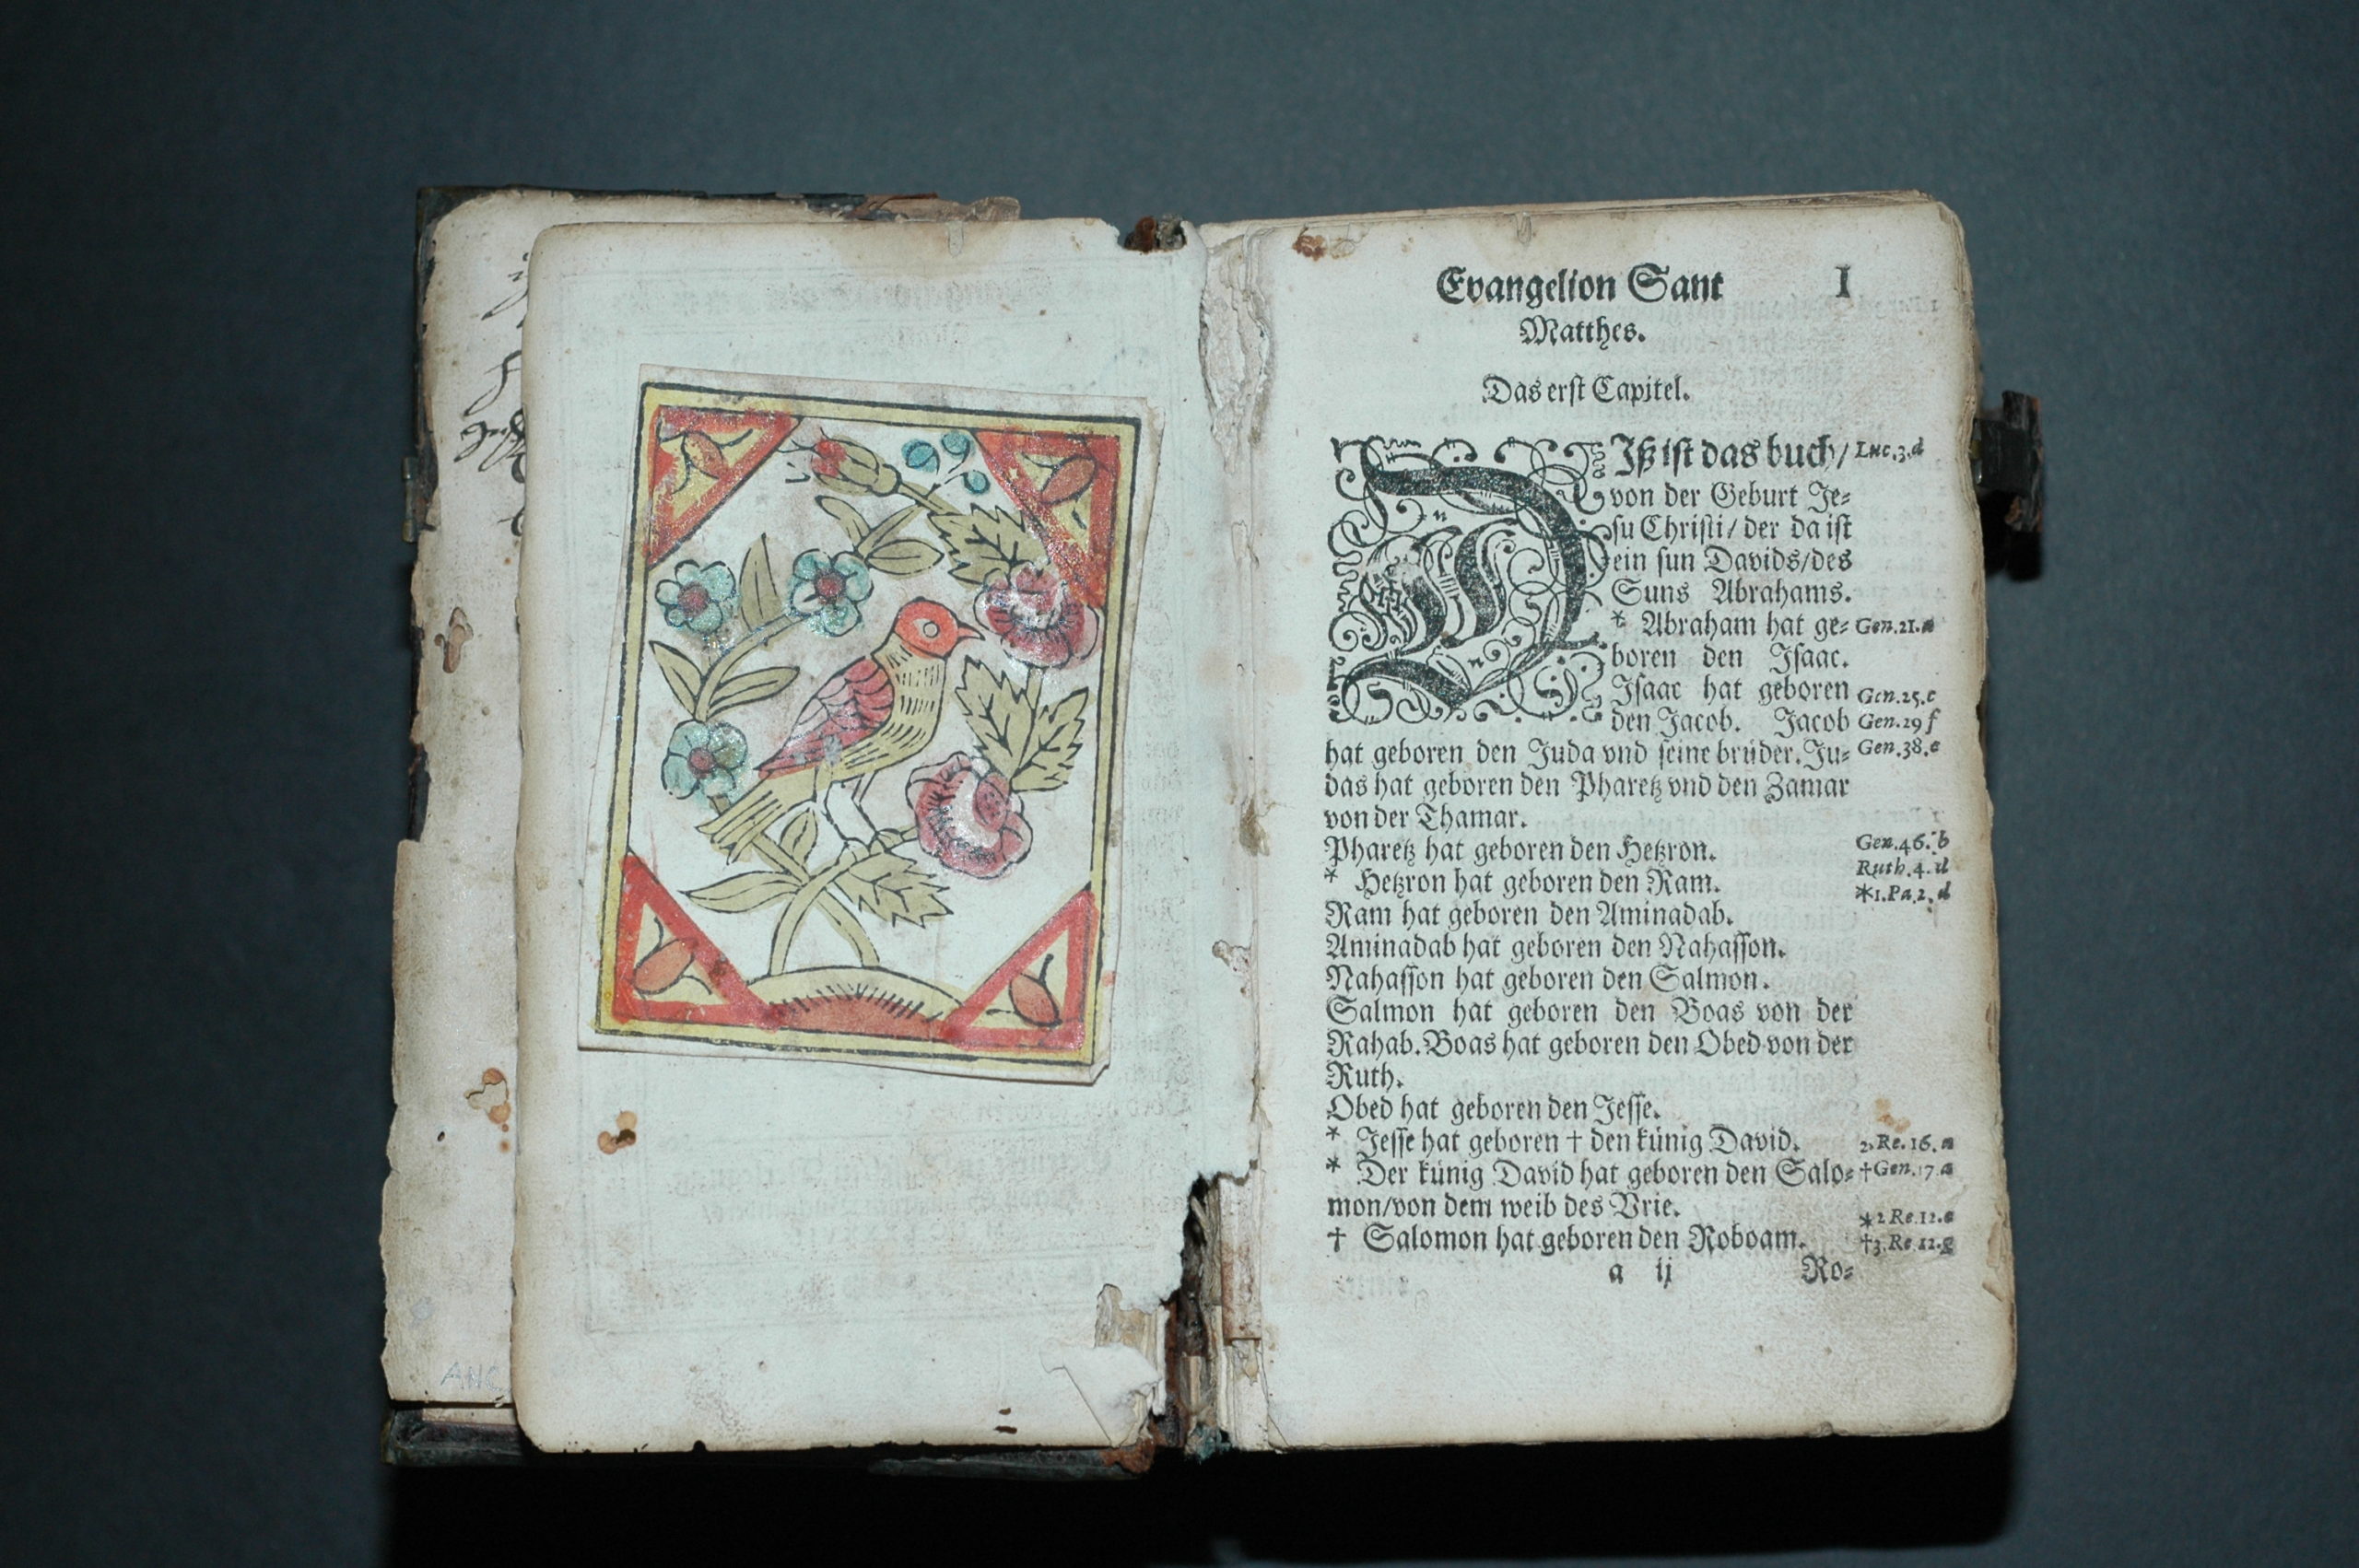 Evangelion Sant 1
Matthes.
Das erst Capitel.
DIß ist das buch/ Luc.3.d
von der Geburt Je⸗
su Christi/ der da ist
ein sun Davids/des
Suns Abrahams.
* Abraham hat ge⸗ Gen.21.a
boren den Isaac.
Isaac hat geboren Gen.25.c
den Jacob. Jacob Gen.29 f
hat geboren den Juda vnd seine brüder. Ju⸗ Gen.38.e
das hat geboren den Pharetz vnd den Zamar
von der Thamar.
Pharetz hat geboren den Hetzron. Gen.46.b
* Hetzron hat geboren den Ram. Ruth.4.d
*1.Pa.2.d
Ram hat geboren den Aminadab.
Aminadab hat geboren den Nahasson.
Nahasson hat geboren den Salmon.
Salmon hat geboren den Boas von der
Rahab. Boas hat geboren den Obed von der
Ruth.
Obed hat geboren den Jesse.
* Jesse hat geboren † den künig David. 2.Re.16.a
* Der künig David hat geboren den Salo⸗ †Gen.17.a
mon/von dem weib des Vrie.
*2 Re.12.e
† Salomon hat geboren den Roboam. †3.Re 12.g
a ij Ro⸗